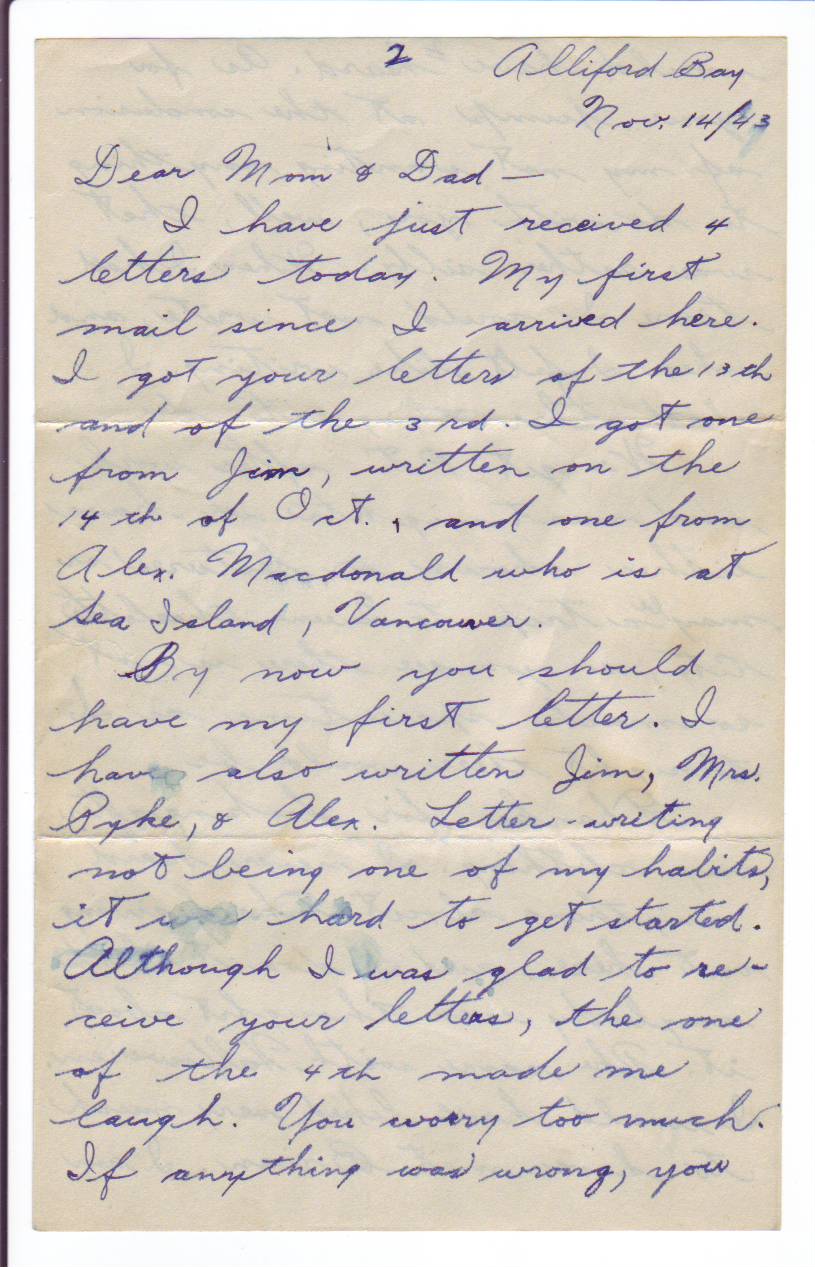 2
Alliford Bay
Nov. 14/43
Dear Mom & Dad —
I have just received 4
letters today. My first
mail since I arrived here.
I got your letters of the 13th
and of the 3rd. I got one
from Jim, written on the
14th of Oct., and one from
Alex. Macdonald who is at
Sea Island, Vancouver.
By now you should
have my first letter. I
have also written Jim, Mrs.
Pyke, & Alex. Letter-writing
not being one of my habits,
it was hard to get started.
Although I was glad to re-
ceive your letters, the one
of the 4th made me
laugh. You worry too much.
If anything was wrong, you